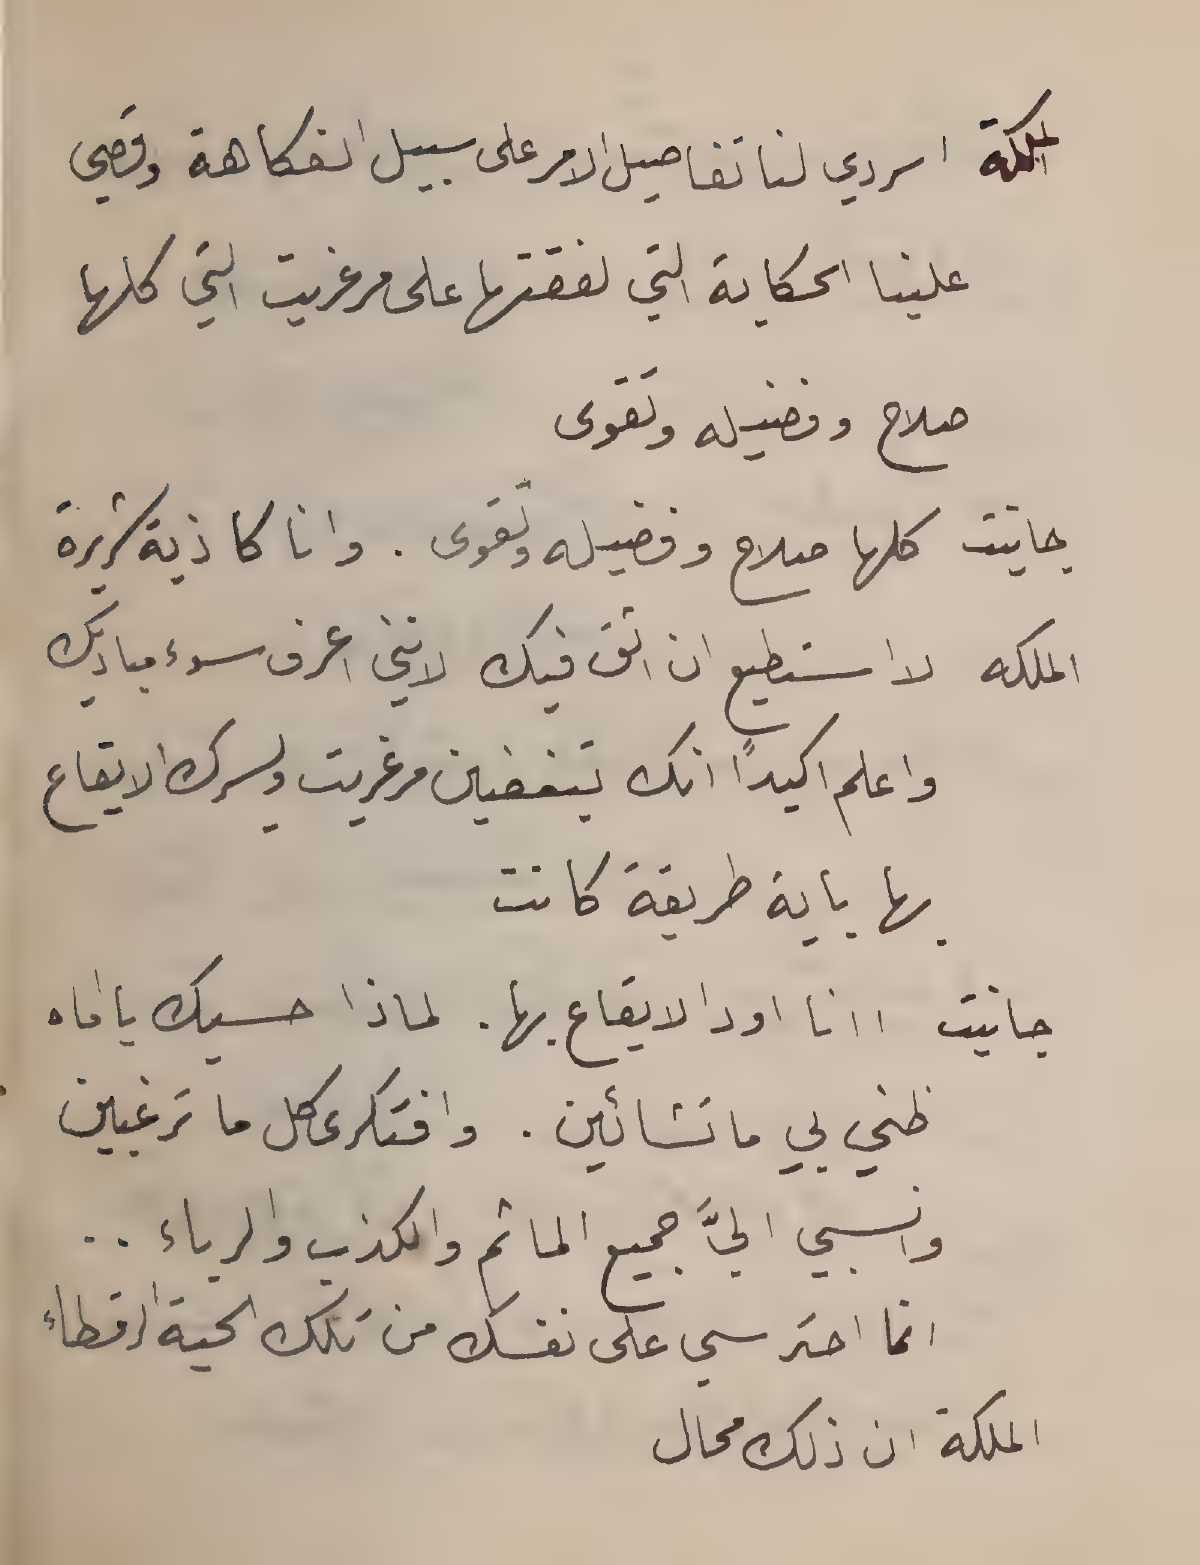 الملكة اسردي لنا تفاصيل الامر على سبيل الفكاهة وقصي
علينا الحكاية التي لفقتها على مرغريت التي كلها
صلاح وفضيله وتقوى
جانيت كلها صلاح وفضيله وتقوى . وانا كاذبة شريرة
الملكه لا استطيع ان اثق فيك لانني اعرف سوء مباديك
واعلم اكيداً انك تبغضين مرغريت ويسرك الايقاع
بها باية طريقة كانت
جانيت اانا اود الايقاع بها . لماذا حسبك يا اماه
ظني بي ما تشائين . وافتكري كل ما ترغبين
وانسبي اليَّ جميع الماثم والكذب والرياء ..
انما احترسي على نفسك من تلك الحية الرقطاء
الملكة ان ذلك محال